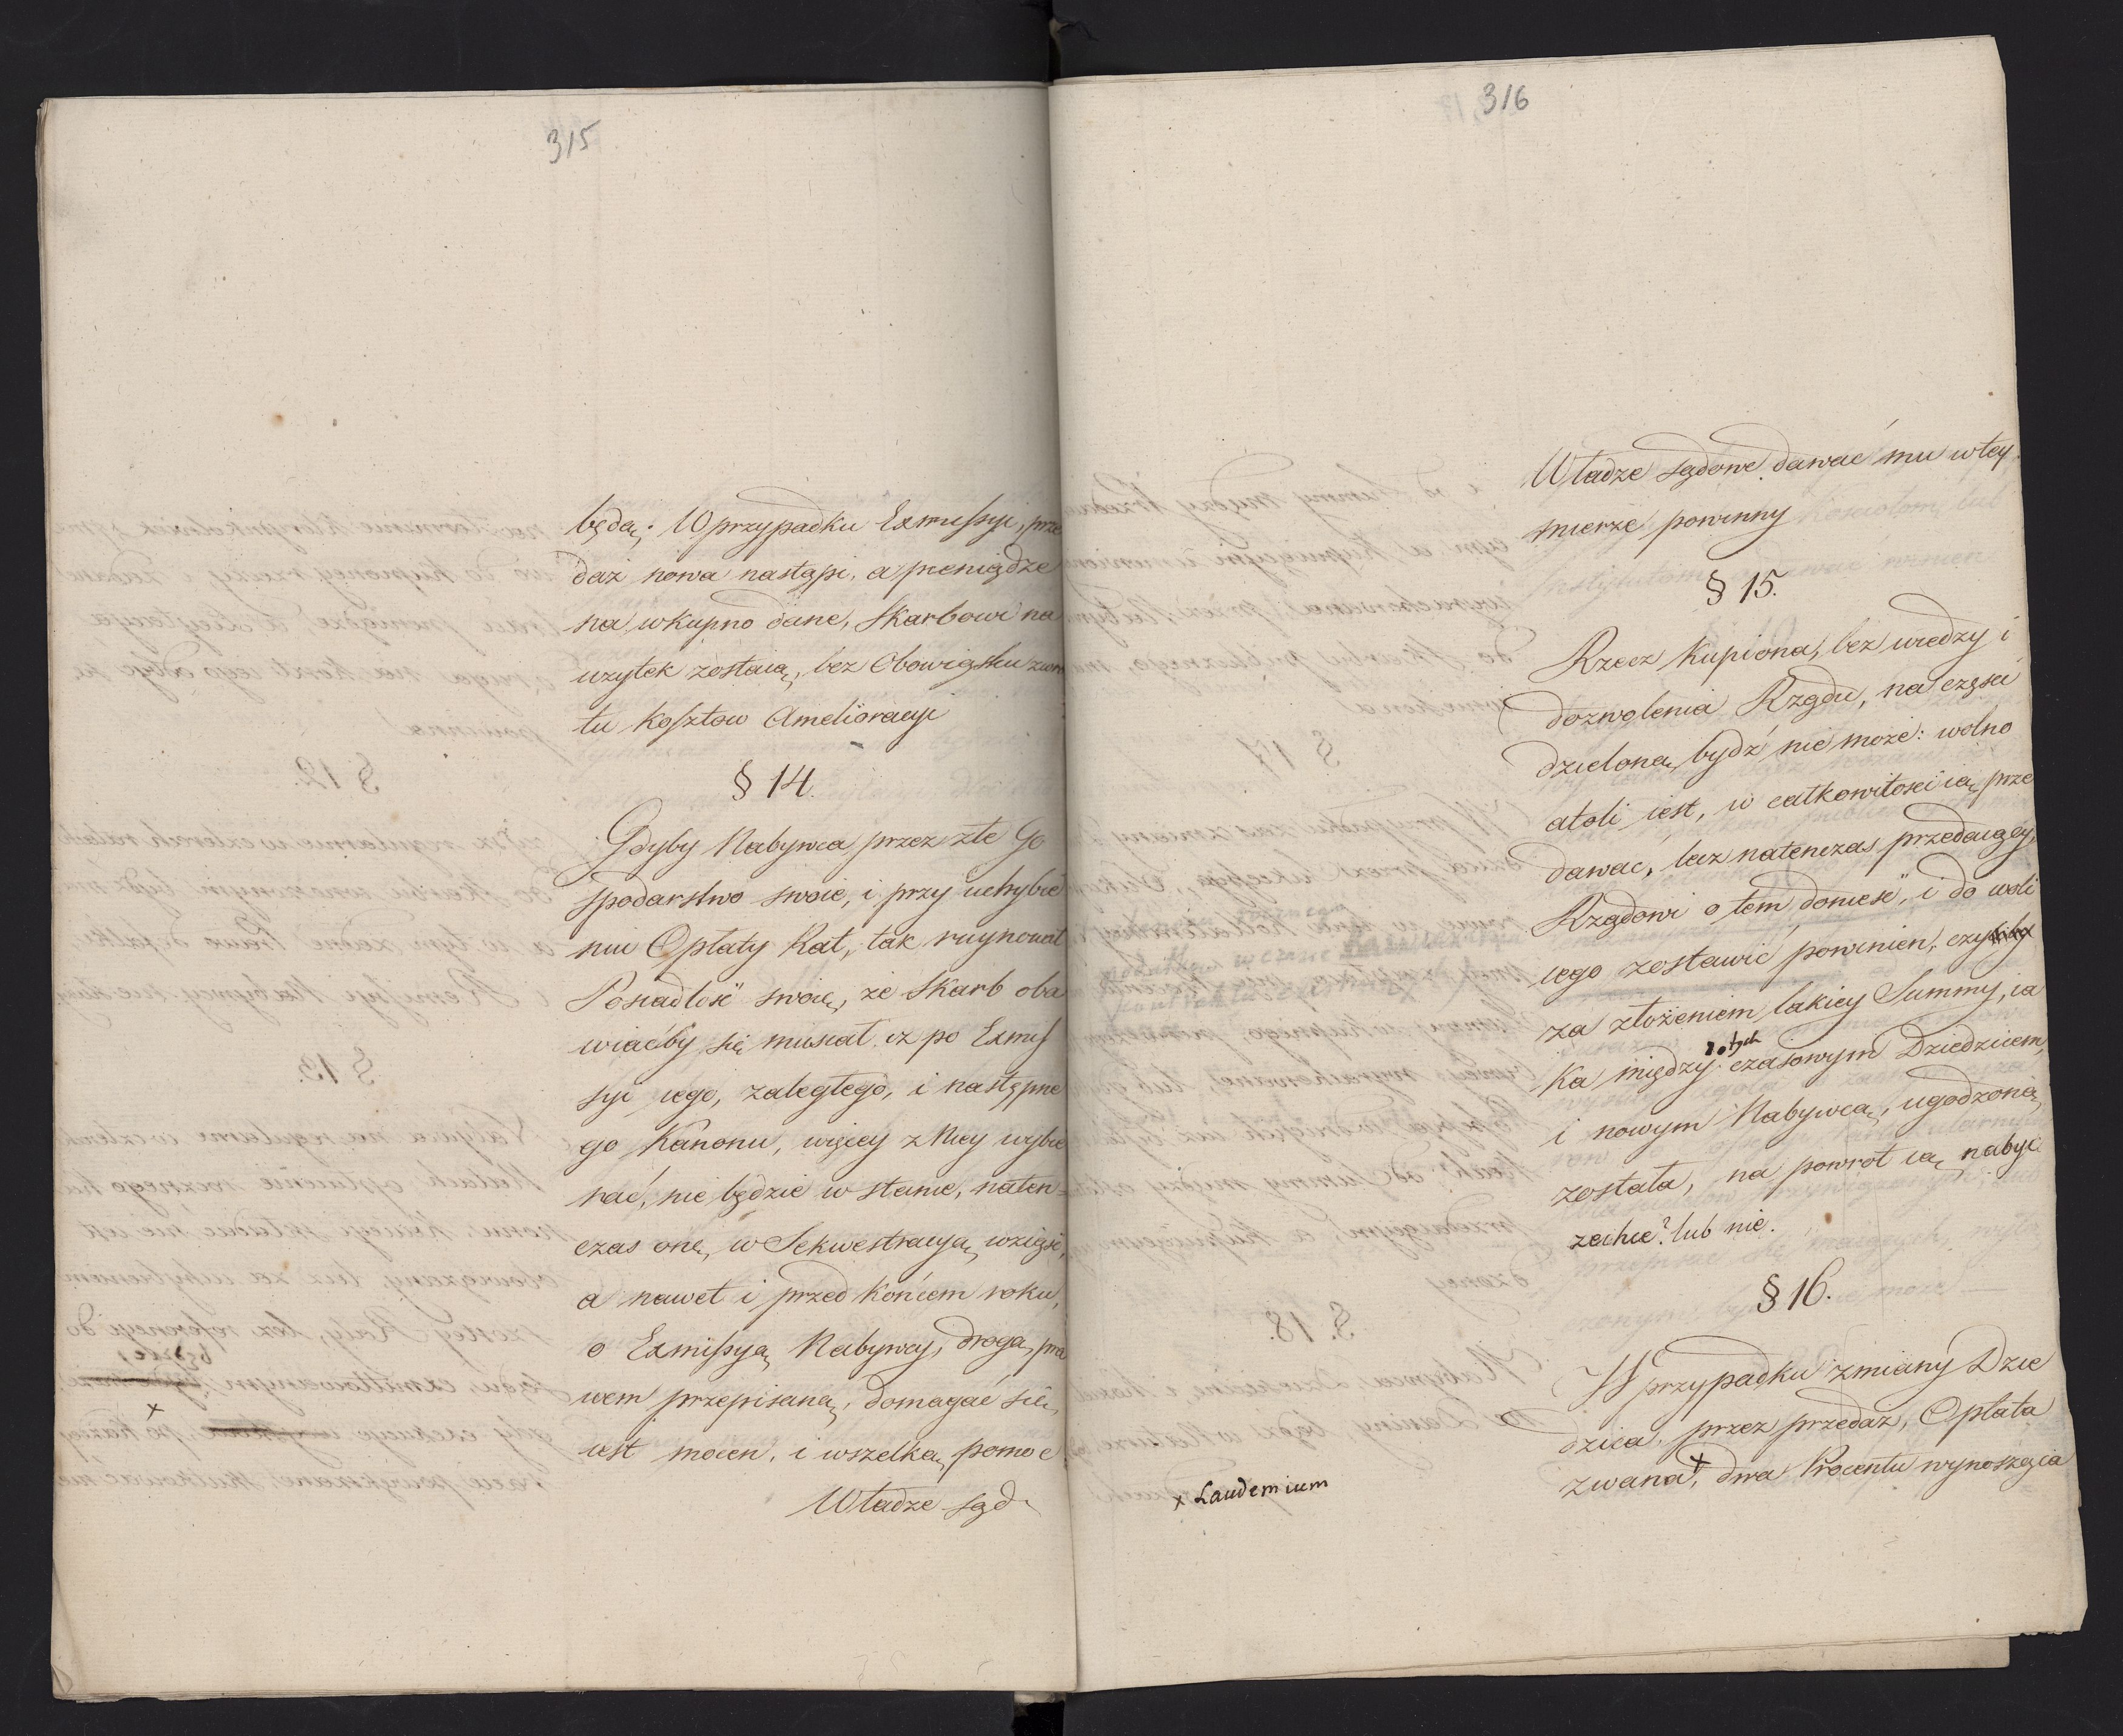 315
będą; W przypadku Exmissyi, prze
daż nowa nastąpi, a pieniądze
na wkupno dane, Skarbowi na
użytek zostaią, bez Obowiązku zwro
tu Kosztow Amelioracyi
§ 14.
Gdyby Nabywca przez złe Go
spodarstwo swoie, i przy uchybie
niu Opłaty Rat, tak ruynował
Posiadłość swoię, że Skarb oba
wiaćby się musiał iż po Exmis
syi iego, zaległego, i następne
go Kanonu, więcey z Niey wybie
rać, nie będzie w stanie, naten=
czas onę, w Sekwestracyą wziąść,
a nawet i przed Końcem roku,
o Exmissyą Nabywcy, drogą pra
wem przepisaną, domagać się
iest mocen, i wszelką pomoc
Władze sąd
316
Władze sądowe dawać mu w tey
mierze powinny
§ 15.
Rzecz Kupiona, bez wiedzy i
dozwolenia Rządu, na części
dzieloną bydź nie może: wolno
atoli iest, w całkowitości ią prze
dawać, lecz natenczas przedaiący,
Rządowi o tem donieść, i do woli
iego zostawić powinien, czyliby
za złożeniem takiey Summy, ia
Ka między dotych czasowym Dziedzicem,
i nowym Nabywcą, ugodzoną
została, na powrot ią nabyć
zechce? lub nie.
§ 16.
W przypadku zmiany Dzie
dzica, przez przedaż, Opłata
zwana x, dwa Procentu wynosząca
x Laudemium